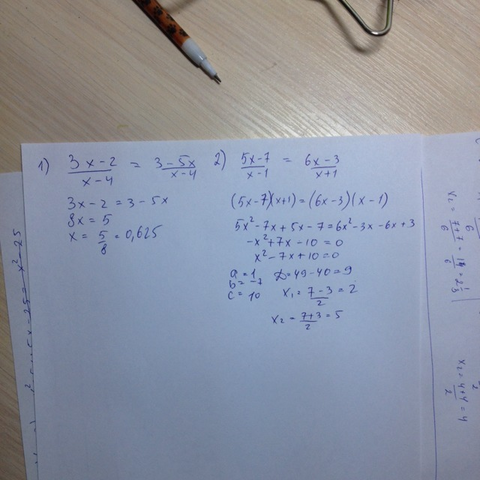 1) (3x-2)/(x-4) = (3-5x)/(x-4)
3x-2 = 3-5x
8x = 5
x = 5/8 = 0,625
2) (5x-7)/(x-1) = (6x-3)/(x+1)
(5x-7)(x+1) = (6x-3)(x-1)
5x²-7x+5x-7 = 6x²-3x-6x+3
-x²+7x-10=0
x²-7x+10=0
a=1
b=-7
c=10
D=49-40=9
x₁ = (7-3)/2 = 2
x₂ = (7+3)/2 = 5
x₂ = (4+4)/2 = 4